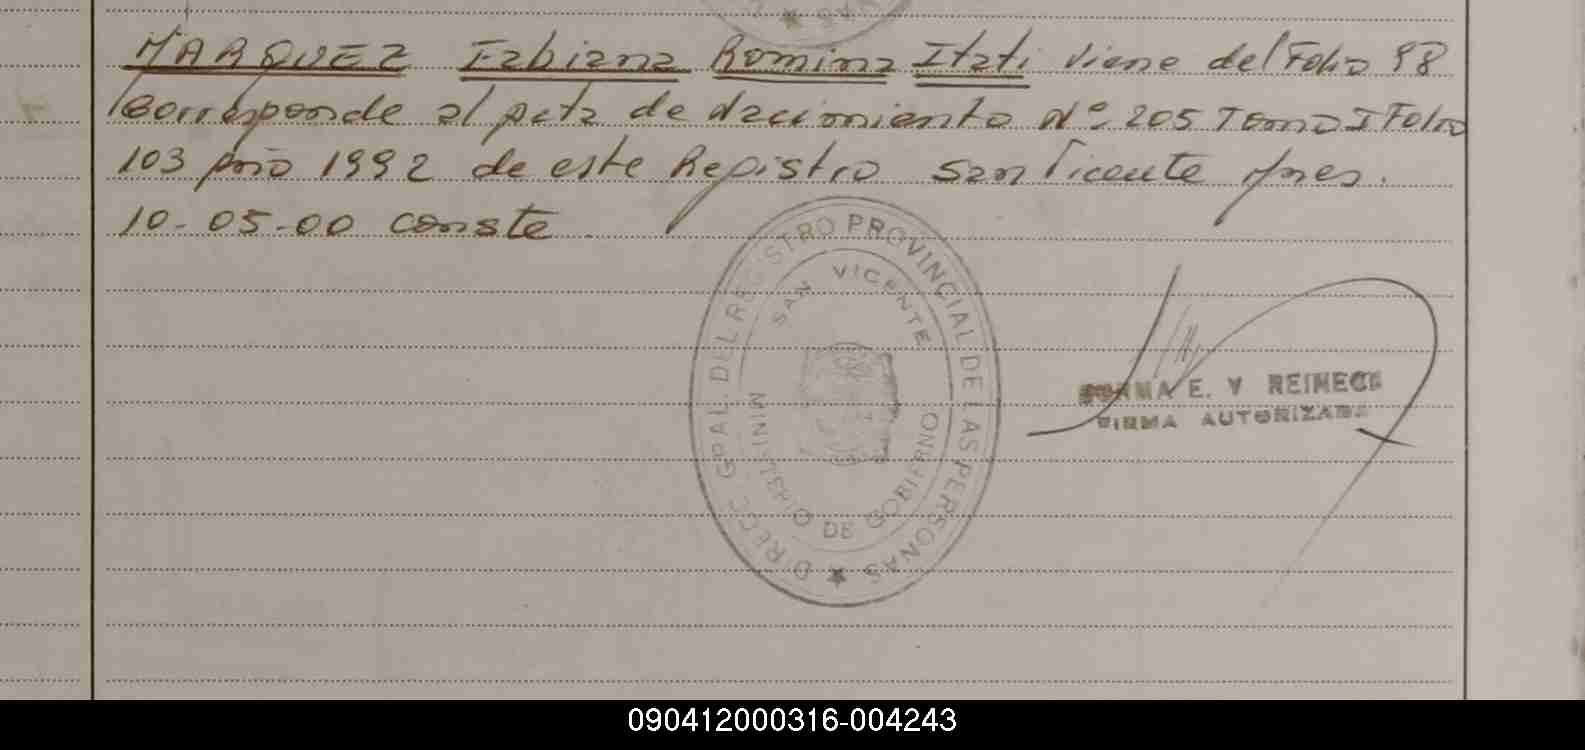 MARQUEZ Fabiana Romina Itati viene del Folio 98
Corresponde al acta de nacimiento Nº 205 Tomo I Folio
103 Año 1992 de este Registro San Vicente Mnes.
10-05-00 conste.
DIRECC. GRAL. DEL REGISTRO PROVINCIAL DE LAS PERSONAS
SAN VICENTE
MINISTERIO DE GOBIERNO
E. V REINECK
FIRMA AUTORIZADA
090412000316-004243